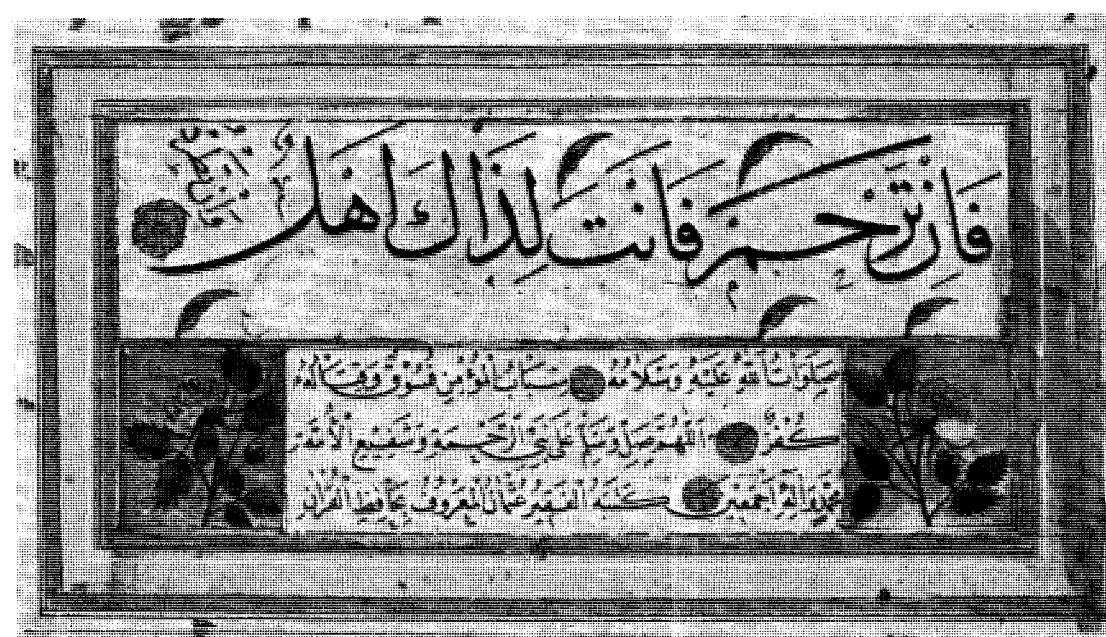 فَاِنْ تَرْحَمْ فَاَنْتَ لِذَاكَ اَهْلٌ وَاِنْ تَطْرُدْ
صَلَوَاتُ اللهِ عَلَيْهِ وَسَلَامُهُ سِبَابُ الْمُؤْمِنِ فُسُوقٌ وَقِتَالُهُ
كُفْرٌ اَللّٰهُمَّ صَلِّ وَسَلِّمْ عَلَى نَبِيِّ الرَّحْمَةِ وَشَفِيعِ الْاُمَّةِ
مُحَمَّدٍ وَاٰلِهِ اَجْمَعِينَ كَتَبَهُ الْفَقِيرُ عُثْمَانُ الْمَعْرُوفُ بِحَافِظِ الْقُرْاٰنِ